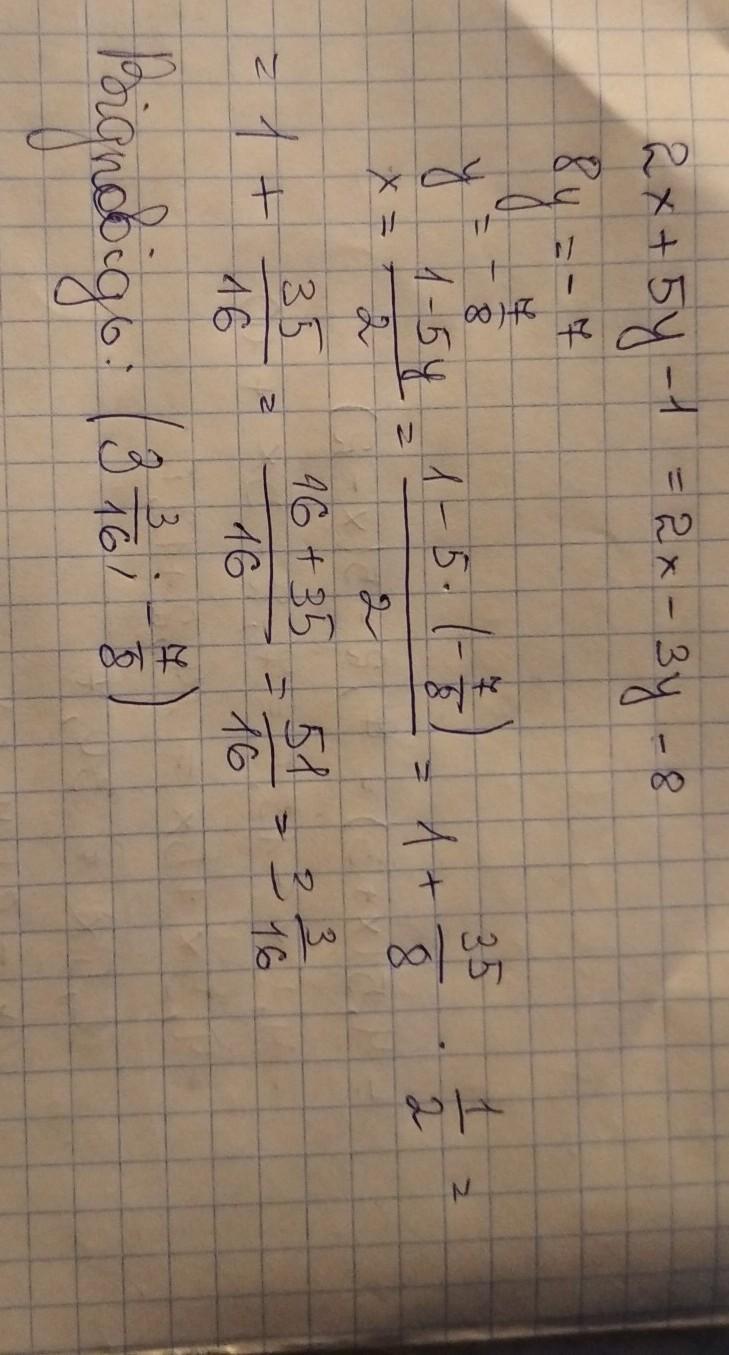 2x + 5y - 1 = 2x - 3y - 8
8y = - 7
y = - 7/8
x = (1 - 5y)/2 = (1 - 5 · (- 7/8))/2 = 1 + 35/8 · 1/2 =
= 1 + 35/16 = (16 + 35)/16 = 51/16 = 2 3/16
Відповідь: (3 3/16; - 7/8)